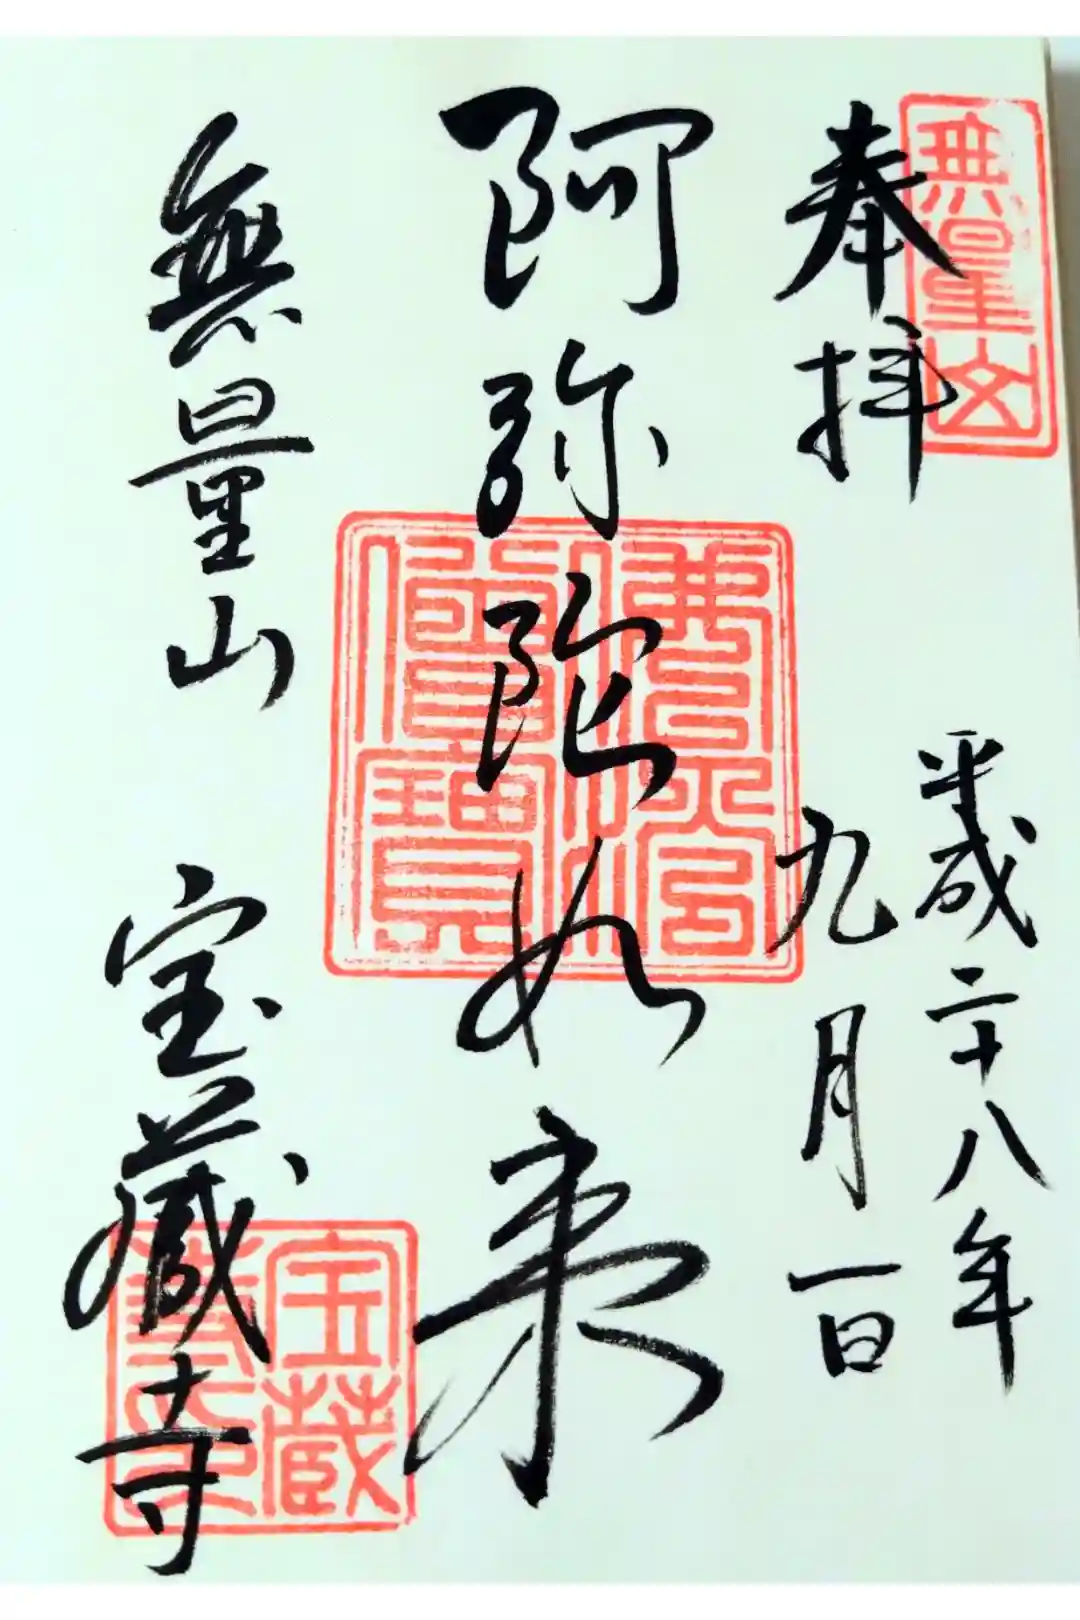 奉拝
無量山
平成二十八年
九月一日
阿弥陀如来
佛法僧寶
無量山 宝蔵寺
宝蔵